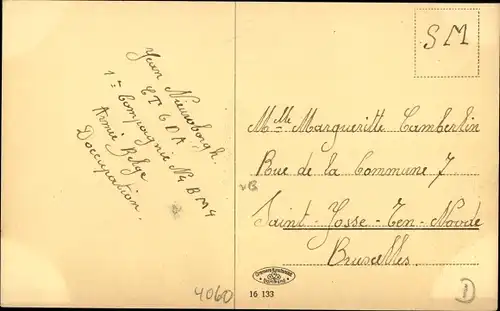 Jean Nieuwborgh.
C T G D A
1e Compagnie N4 BM4
Armée Belge
D'occupation.
SM
Mlle Margueritte Camberlin
Rue de la Commune 7
Saint-Josse-Ten-Noode
Bruxelles.
4060
16 133